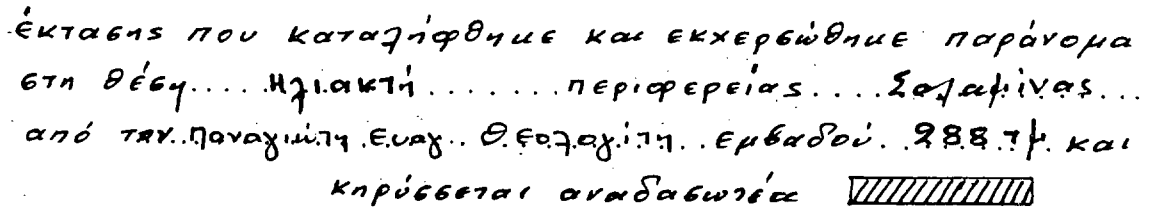 έκτασης που καταλήφθηκε και εκχερσώθηκε παράνομα
στη θέση..... Ηλιακτή ....... περιφερείας .... Σαλαμίνας...
από τον.. Παναγιώτη. Ευαγ.. Θεολογίτη.. εμβαδού. .288. τμ. και
κηρύσσεται αναδασωτέα